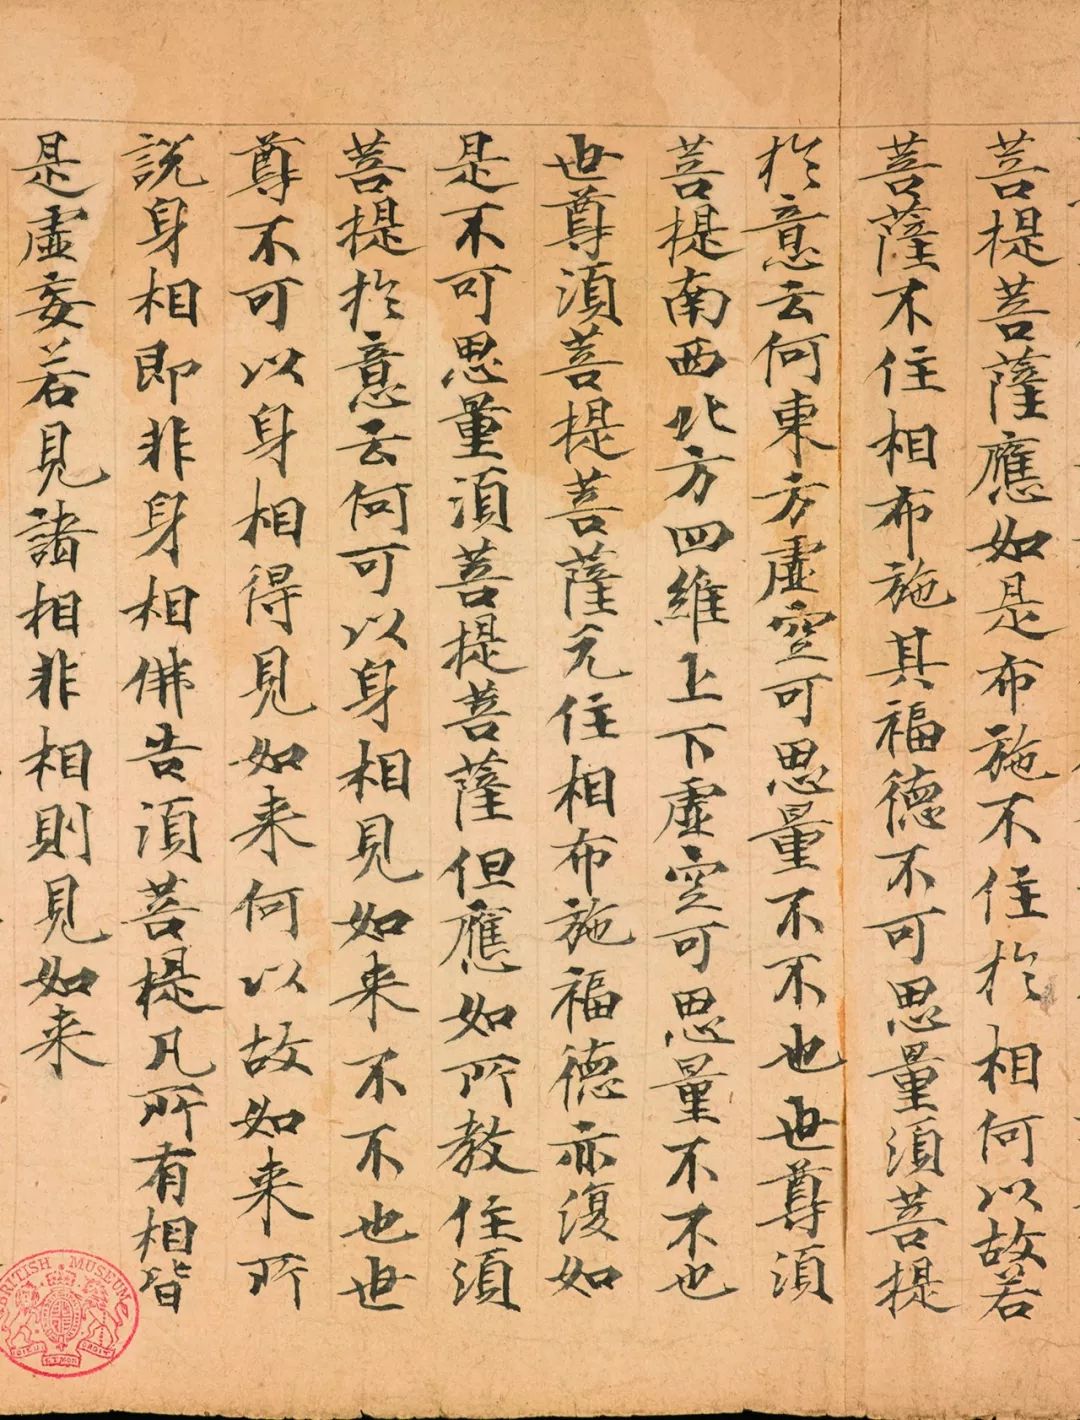 菩提菩薩應如是布施不住於相何以故若
菩薩不住相布施其福德不可思量須菩提
於意云何東方虛空可思量不不也世尊須
菩提南西北方四維上下虛空可思量不不也
世尊須菩提菩薩无住相布施福德亦復如
是不可思量須菩提菩薩但應如所教住須
菩提於意云何可以身相見如来不不也世
尊不可以身相得見如来何以故如来所
說身相即非身相佛告須菩提凡所有相皆
是虛妄若見諸相非相則見如来
BRITISH MUSEUM
DIEU ET MON DROIT